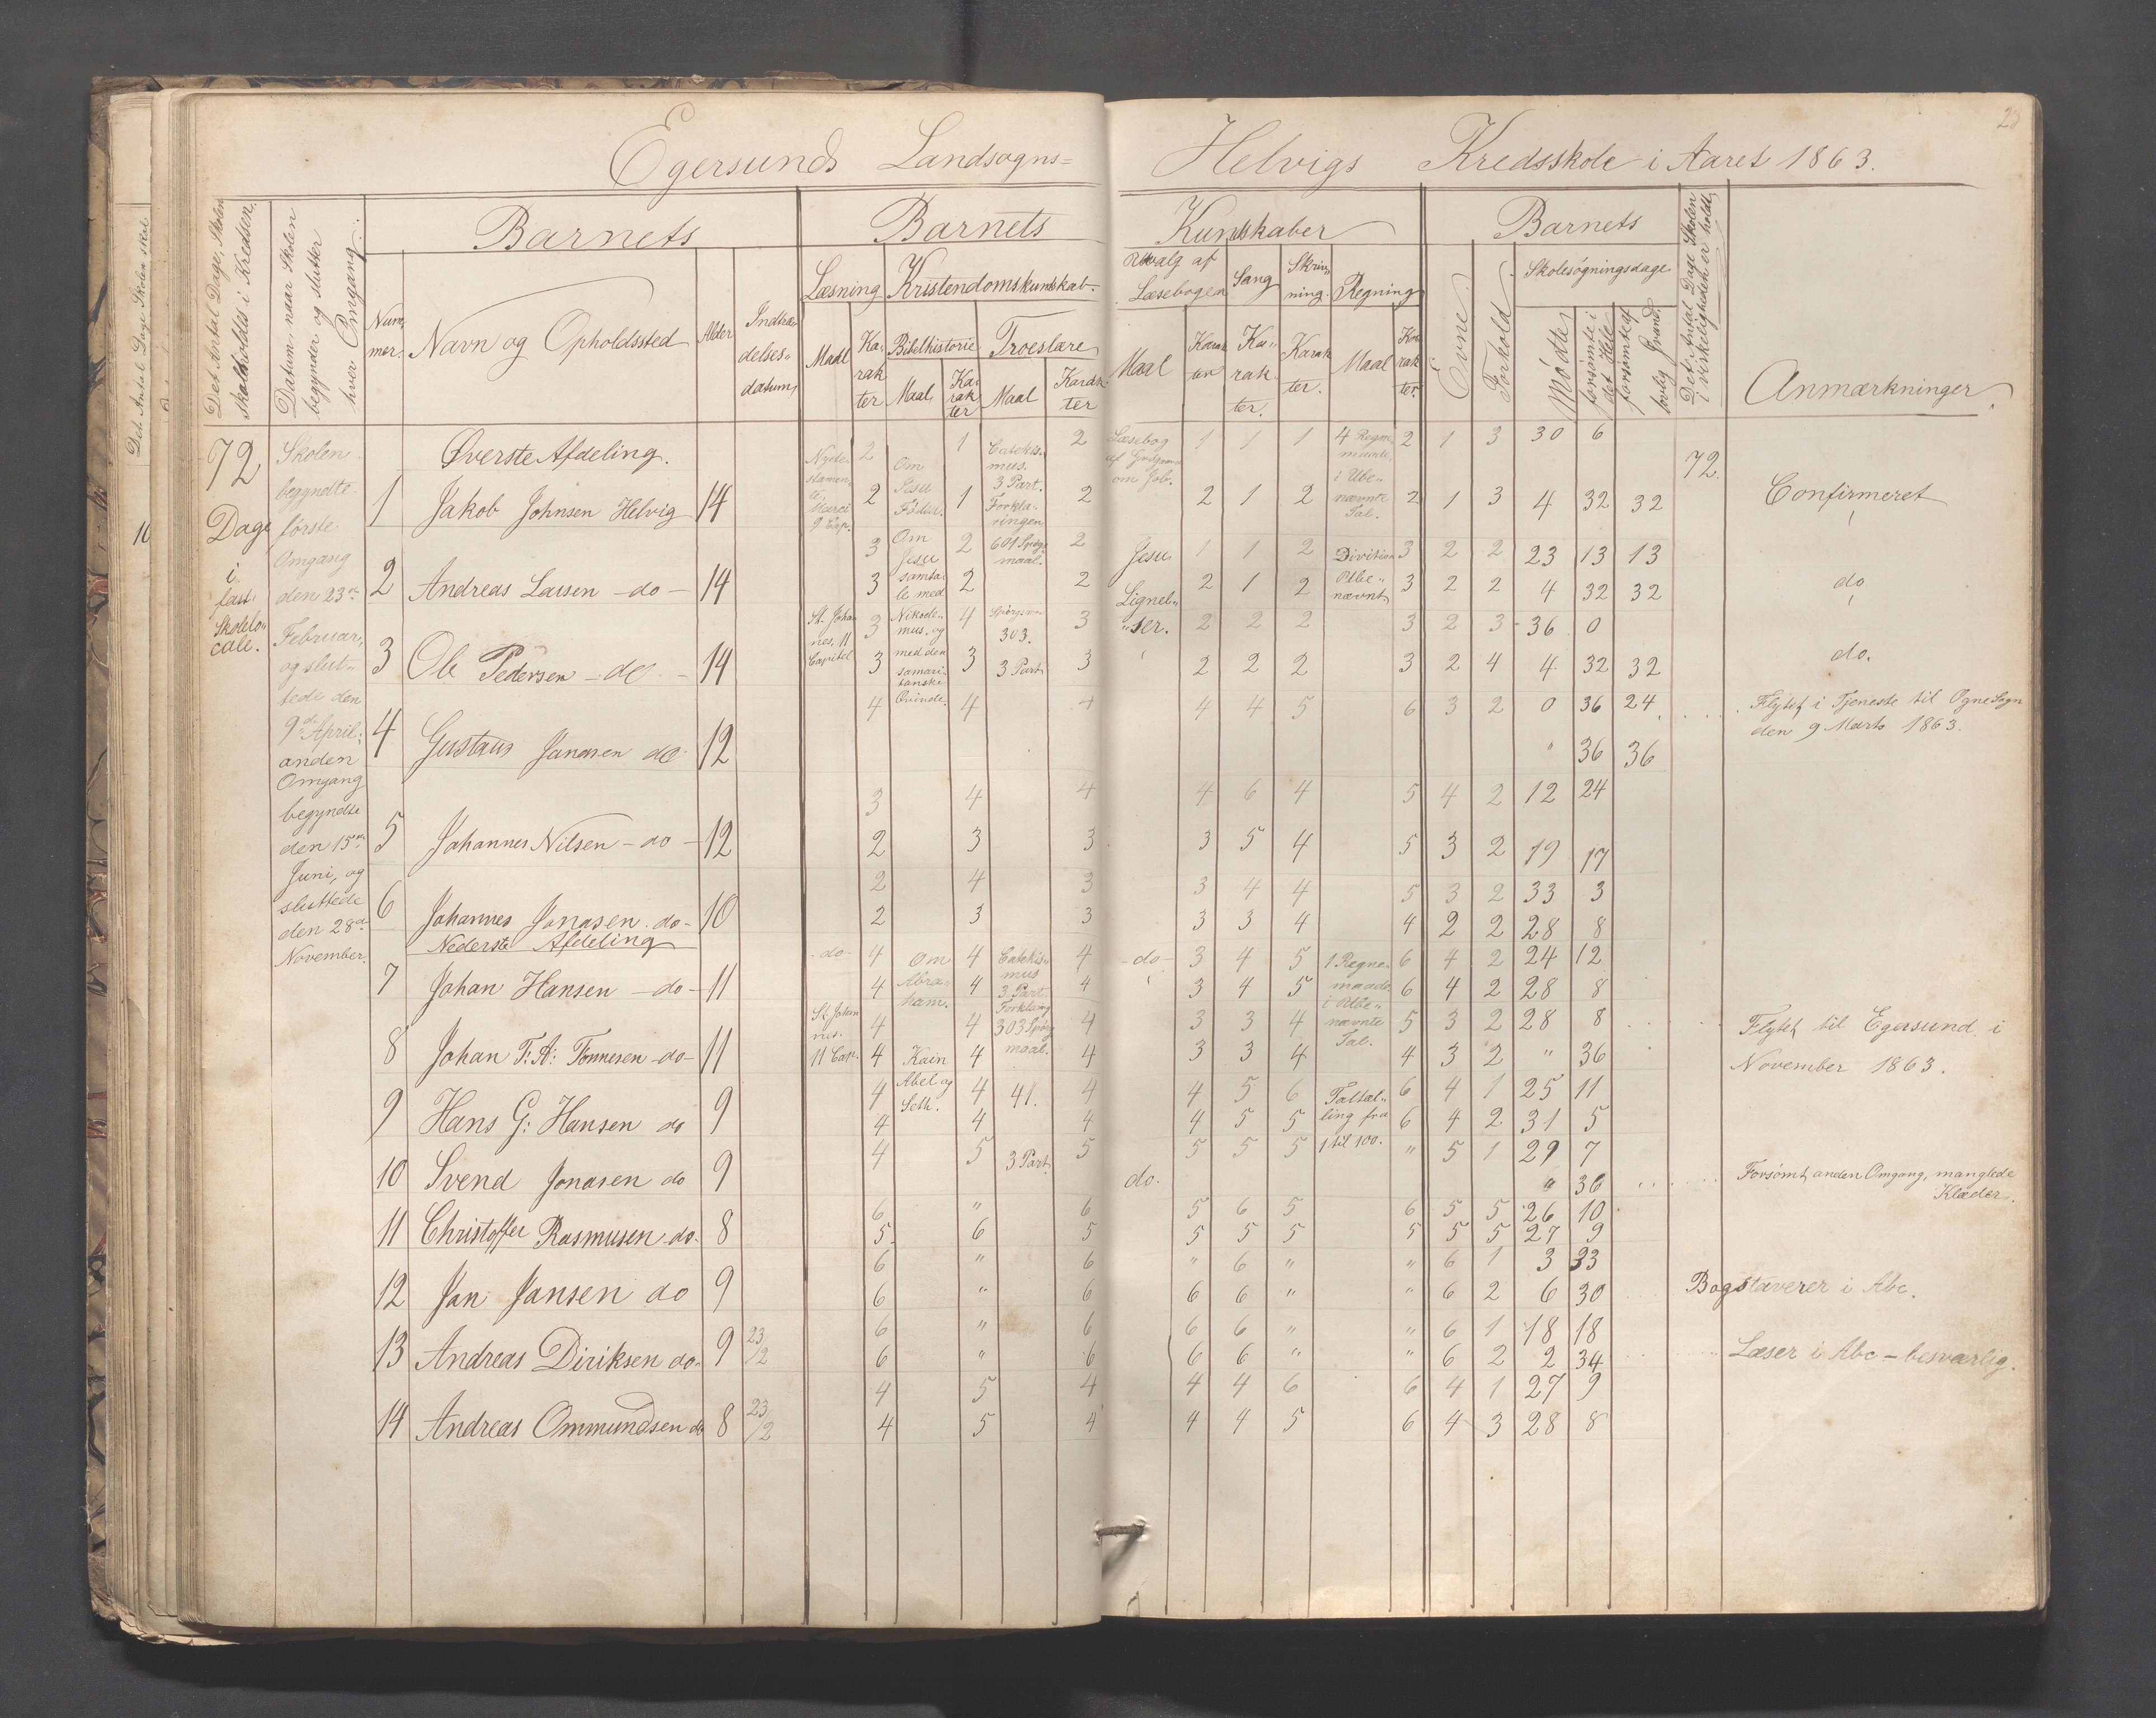 Egersunds Landsogns=
Helvigs Kredsskole i Aaret 1863.
Det Antal Dage, Skolen
skalholdes i Kredsen.
Datum naar Skolen
begynder og slutter
hver Omgang.
Barnets
Num-
mer.
Navn og Opholdssted
Alder
Indtræ-
delses-
datum,
Barnets
Læsning
Kristendomskundskab.
Maal
Ka-
rak
ter
Bibelhistorie
Maal
Ka-
rak
ter
Troeslære
Maal
Karak-
ter
Kundskaber
Udvalg af
Læsebogen
Maal
Karak
ter
Sang
Ka-
rak
ter.
Skriv-
ning.
Karak
ter.
Regning
Maal
Ka-
rak
ter.
Barnets
Evne
Forhold
Skolesøgningsdage
Mødte
forsømte i
det Hele
forsømte af
lovlig Grund.
Det Antal Dage Skolen
i virkeligheden er holdt,
Anmærkninger.
72
Dage,
i
fast
Skolelo-
cale.
Skolen
begyndte
første
Omgang
den 23de
Februar,
og slut-
tede den
9de April;
anden
Omgang
begyndte
den 15de
Juni, og
sluttede
den 28de
November.
Øverste Afdeling.
2 1 2 1 1 1 2 1 3 30 6
1 Jakob Johnsen Helvig 14 2 1 2 2 1 2 2 1 3 4 32 32 Confirmeret
3 2 2 1 1 2 3 2 2 23 13 13
2 Andreas Larsen do 14 3 2 2 2 1 2 3 2 2 4 32 32 do
3 4 3 2 2 2 3 2 3 36 0
3 Ole Pedersen do 14 3 3 3 2 2 2 3 2 4 4 32 32 do.
4 4 4 4 5 6 3 2 0 36 24 Flyttet i Tjeneste til Ogne Sogn
den 9 Marts 1863.
4 Gustaus Janasen do 12 " 36 36
3 4 4 4 6 4 5 4 2 12 24
5 Johannes Nilsen do 12 2 3 3 3 5 4 5 3 2 19 17
2 4 3 3 4 4 5 3 2 33 3
6 Johannes Jonasen do 10 2 3 3 3 3 4 4 2 2 28 8
Nederste Afdeling
4 4 4 3 4 5 6 4 2 24 12
7 Johan Hansen do 11 4 4 4 3 4 5 6 4 2 28 8
4 4 4 3 3 4 5 3 2 28 8
8 Johan T. A. Tönnesen do 11 4 4 4 3 3 4 4 3 2 " 36
Flyttet til Egersund i
November 1863.
4 4 4 4 5 6 6 4 1 25 11
9 Hans G: Hansen do 9 4 4 4 4 5 5 6 4 2 31 5
4 5 5 5 5 5 " 5 1 29 7
10 Svend Jonasen do 9 " 36 Forsømt anden Omgang, manglede
Klæder.
6 " 6 5 6 5 6 5 5 26 10
11 Christoffer Rasmusen do 8 5 6 5 5 5 5 5 5 5 27 9
6 " 6 " 6 " " 6 1 3 33
12 Jan Jansen do 9 6 " 6 6 6 " " 6 2 6 30 Bogstaverer i Abc.
6 " 6 6 6 " " 6 1 18 18
13 Andreas Diriksen do 9 23/2 6 " 6 6 6 " " 6 2 2 34 Læser i Abc - besværlig.
4 5 4 4 4 6 6 4 1 27 9
14 Andreas Ommundsen do 8 23/2 4 5 4 4 4 5 6 4 3 28 8
Nyte-
stamen-
te,
Marci
9 Cap.
St. Johan
nes. 11
Capitel
do
St. Johan
nes.
11 Cap.
Om
Jesu
Fødsel.
Om
Jesu
samta-
le med
Nikode-
mus, og
med den
samari-
tanske
Qvinde.
Om
Abra-
ham.
Kain
Abel og
Seth.
Catekis-
mus.
3 Part.
Forkla-
ringen
601 Spørgs
maal.
303.
3 Part
Catekis-
mus
3 Part.
Forklaring
303 Spørgs
maal.
41.
3 Part.
Læsebog
om Job.
Jesu
Lignel-
ser.
do
do.
4 Regne
maader
i Ube-
nævnte
Tal.
Division
Ube-
nævnt
1 Regne
maade
i Ube-
nævnte
Tal.
Taltæl-
ling fra
1 til 100.
72.